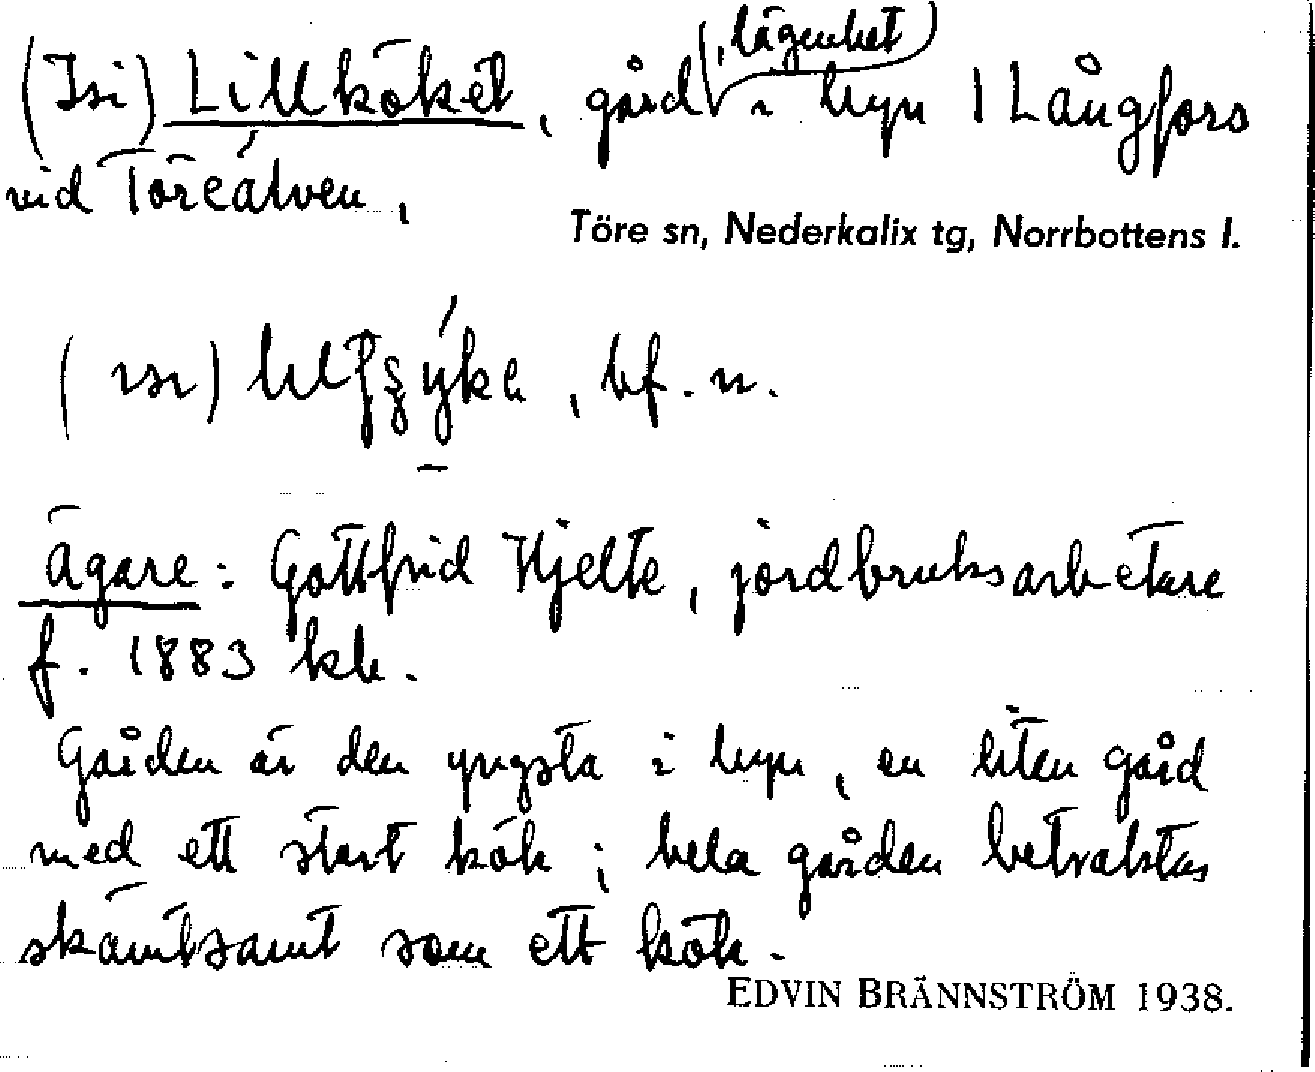 , lägenhet
(Isi) Lillköket, gård i byn Långfors
vid Töreälven,
Töre sn, Nederkalix tg, Norrbottens l.
bf. n.
Ägare: Gottfrid Hjelte, jordbruksarbetare
f. 1883 här.
Gården är den yngsta i byn, en liten gård
med ett stort kök; hela gården betraktas
skämtsamt som ett kök.
EDVIN BRÄNNSTRÖM 1938.